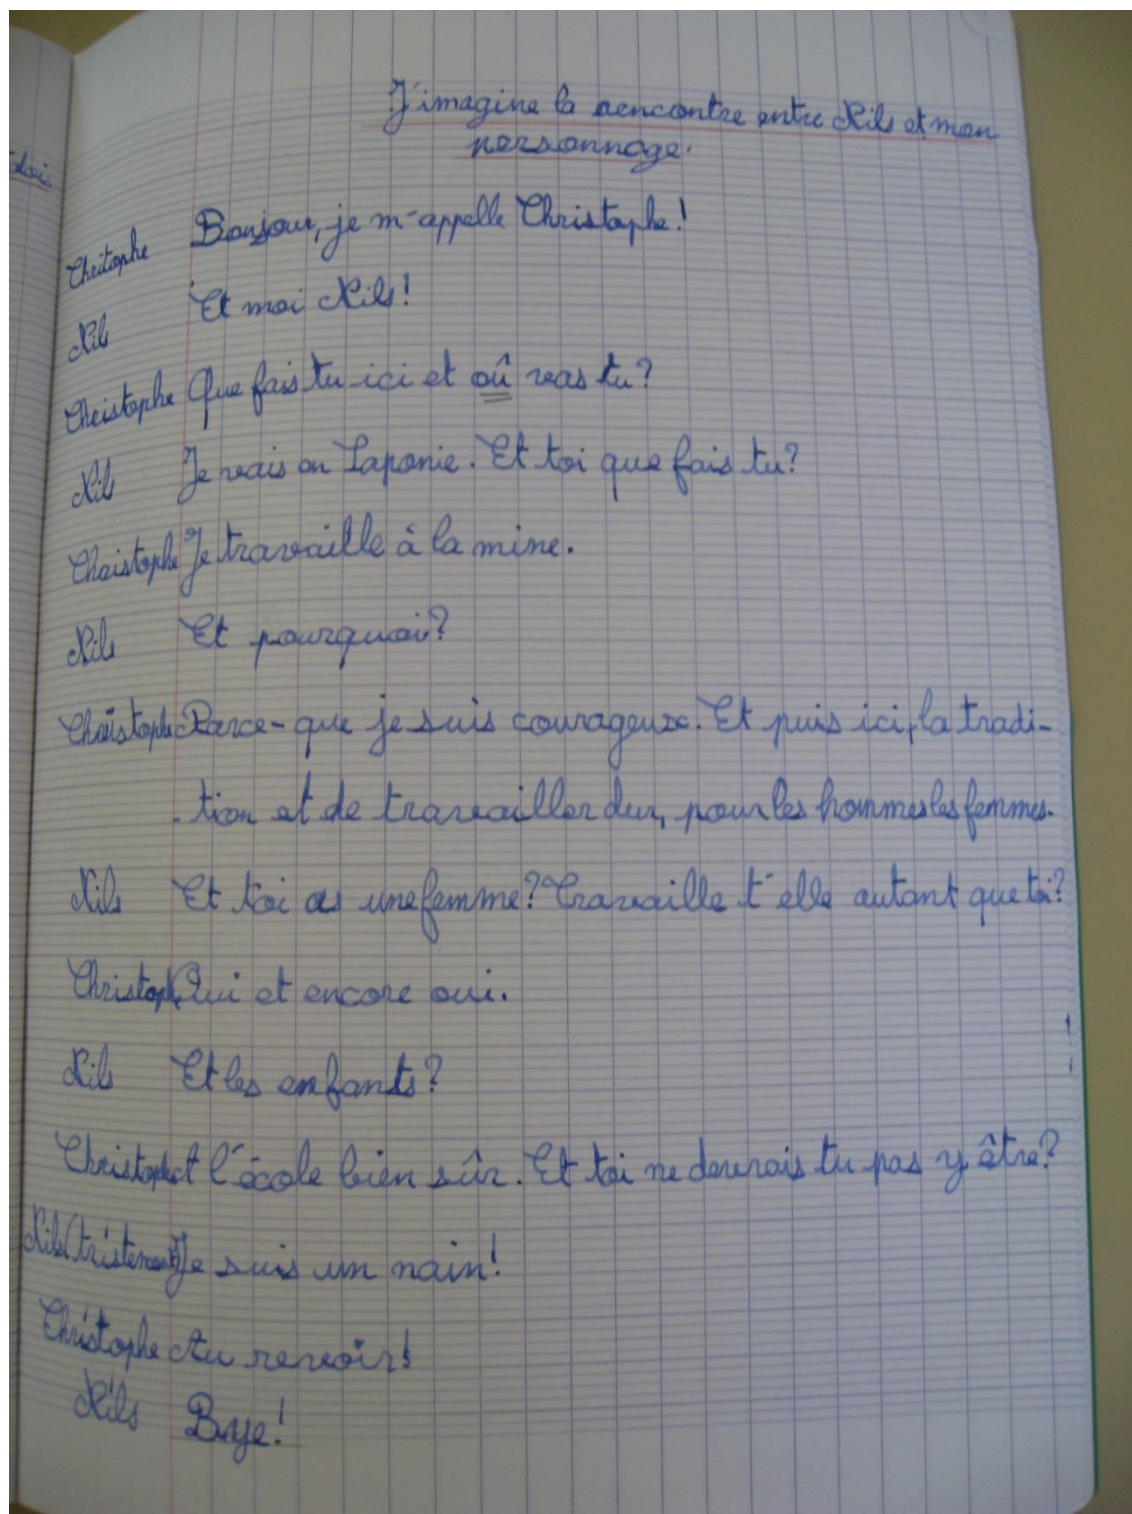 J'imagine la rencontre entre Nils et mon
personnage.
lois
Christophe Bonjour, je m'appelle Christophe!
Nils Et moi Nils!
Christophe Que fais tu ici et où vas tu?
Nils Je vais en Laponie. Et toi que fais tu?
Christophe Je travaille à la mine.
Nils Et pourquoi?
Christophe Parce-que je suis courageux. Et puis ici, la tradi-
-tion et de travailler dur, pour les hommes les femmes.
Nils Et toi as une femme? Travaille t'elle autant que toi?
Christophe Oui et encore oui.
Nils Et les enfants?
Christophe A l'école bien sûr. Et toi ne devrais tu pas y être?
Nils (tristement) Je suis un nain!
Christophe Au revoir!
Nils Bye!